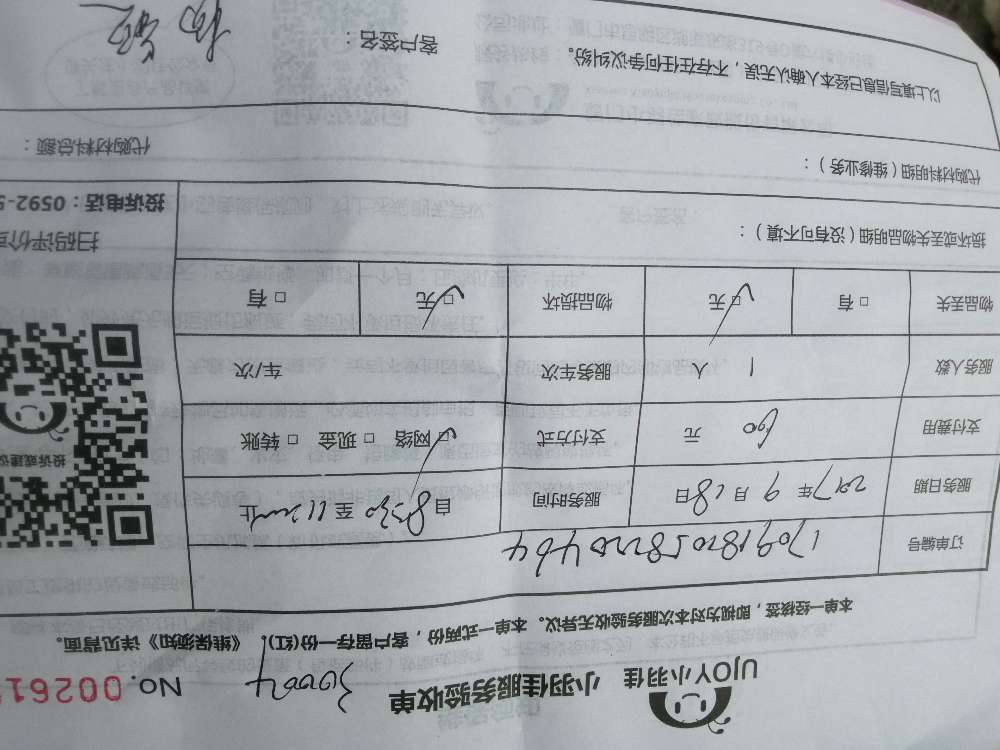 UJOY小羽佳 小羽佳服务验收单 30004 No. 00261
本单一经核签，即视为对本次服务验收无异议。本单一式两份，客户留存一份(红)。《维保须知》详见背面。
订单编号
服务日期 2017年9月18日 服务时间 自8:30至11:20止
支付费用 690 元 支付方式 ☑ 网络 □ 现金 □ 转账
服务人数 1 人 服务车次 车/次
物品丢失 □ 有 ☑ 无 物品损坏 ☑ 无 □ 有
损坏或丢失物品明细（没有可不填）：
代购材料明细（维修业务）： 代购材料总额：
以上填写信息已经本人确认无误，不存在任何争议纠纷。 客户签名：
投诉或建议
扫码评价
投诉电话：0592-5